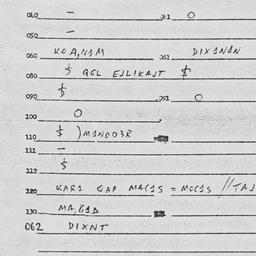 040 – 041 0
050 –
060 KOA,N1M 061 DIX1N1N
080 $ QGL EJLIKAJT $
090 $ 091 0
100 0
110 $ )M1NOD3R
111 –
112 $
120 KAR1 GAP MAC1S = MOC1S //TAJ
130 MA,G1D
062 DIXNT